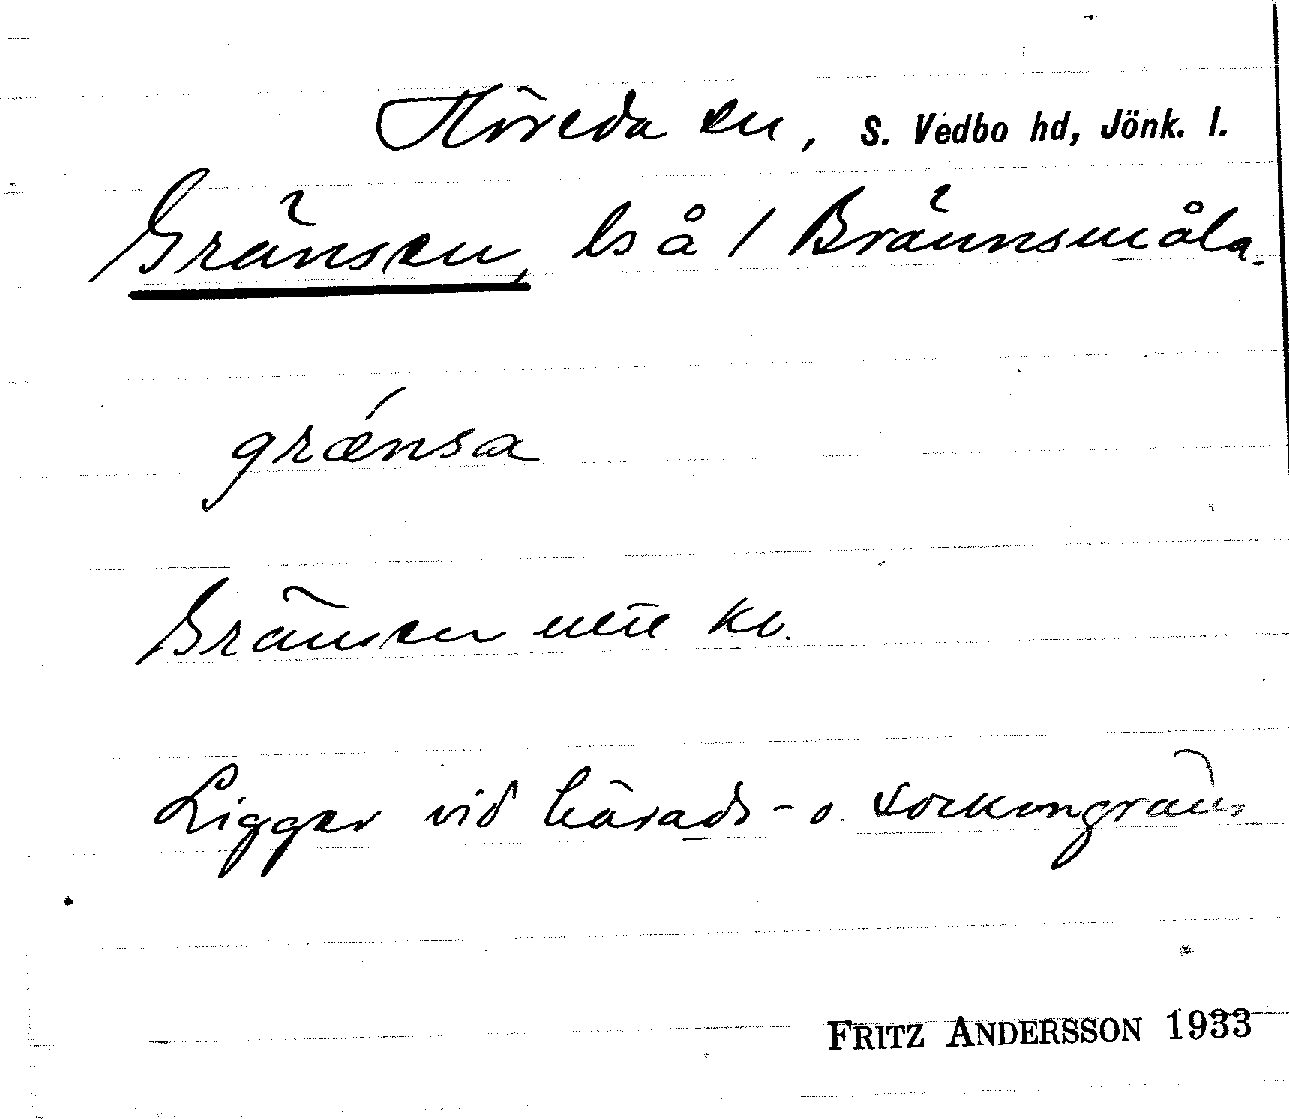 Höreda sn, S. Vedbo hd, Jönk. l.
Gränsen, ls å / Brännsmåla.
grǽnsa
Gränsen
Ligger vid härads- o. sockengräns
FRITZ ANDERSSON 1933